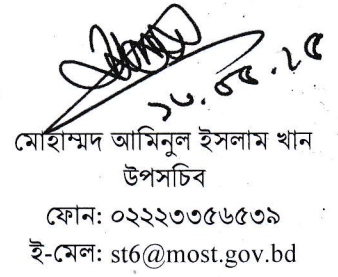 ১৩.০৫.২৫
মোহাম্মদ আমিনুল ইসলাম খান
উপসচিব
ফোন: ০২২২৩৩৫৬৫৩৯
ই-মেল: st6@most.gov.bd